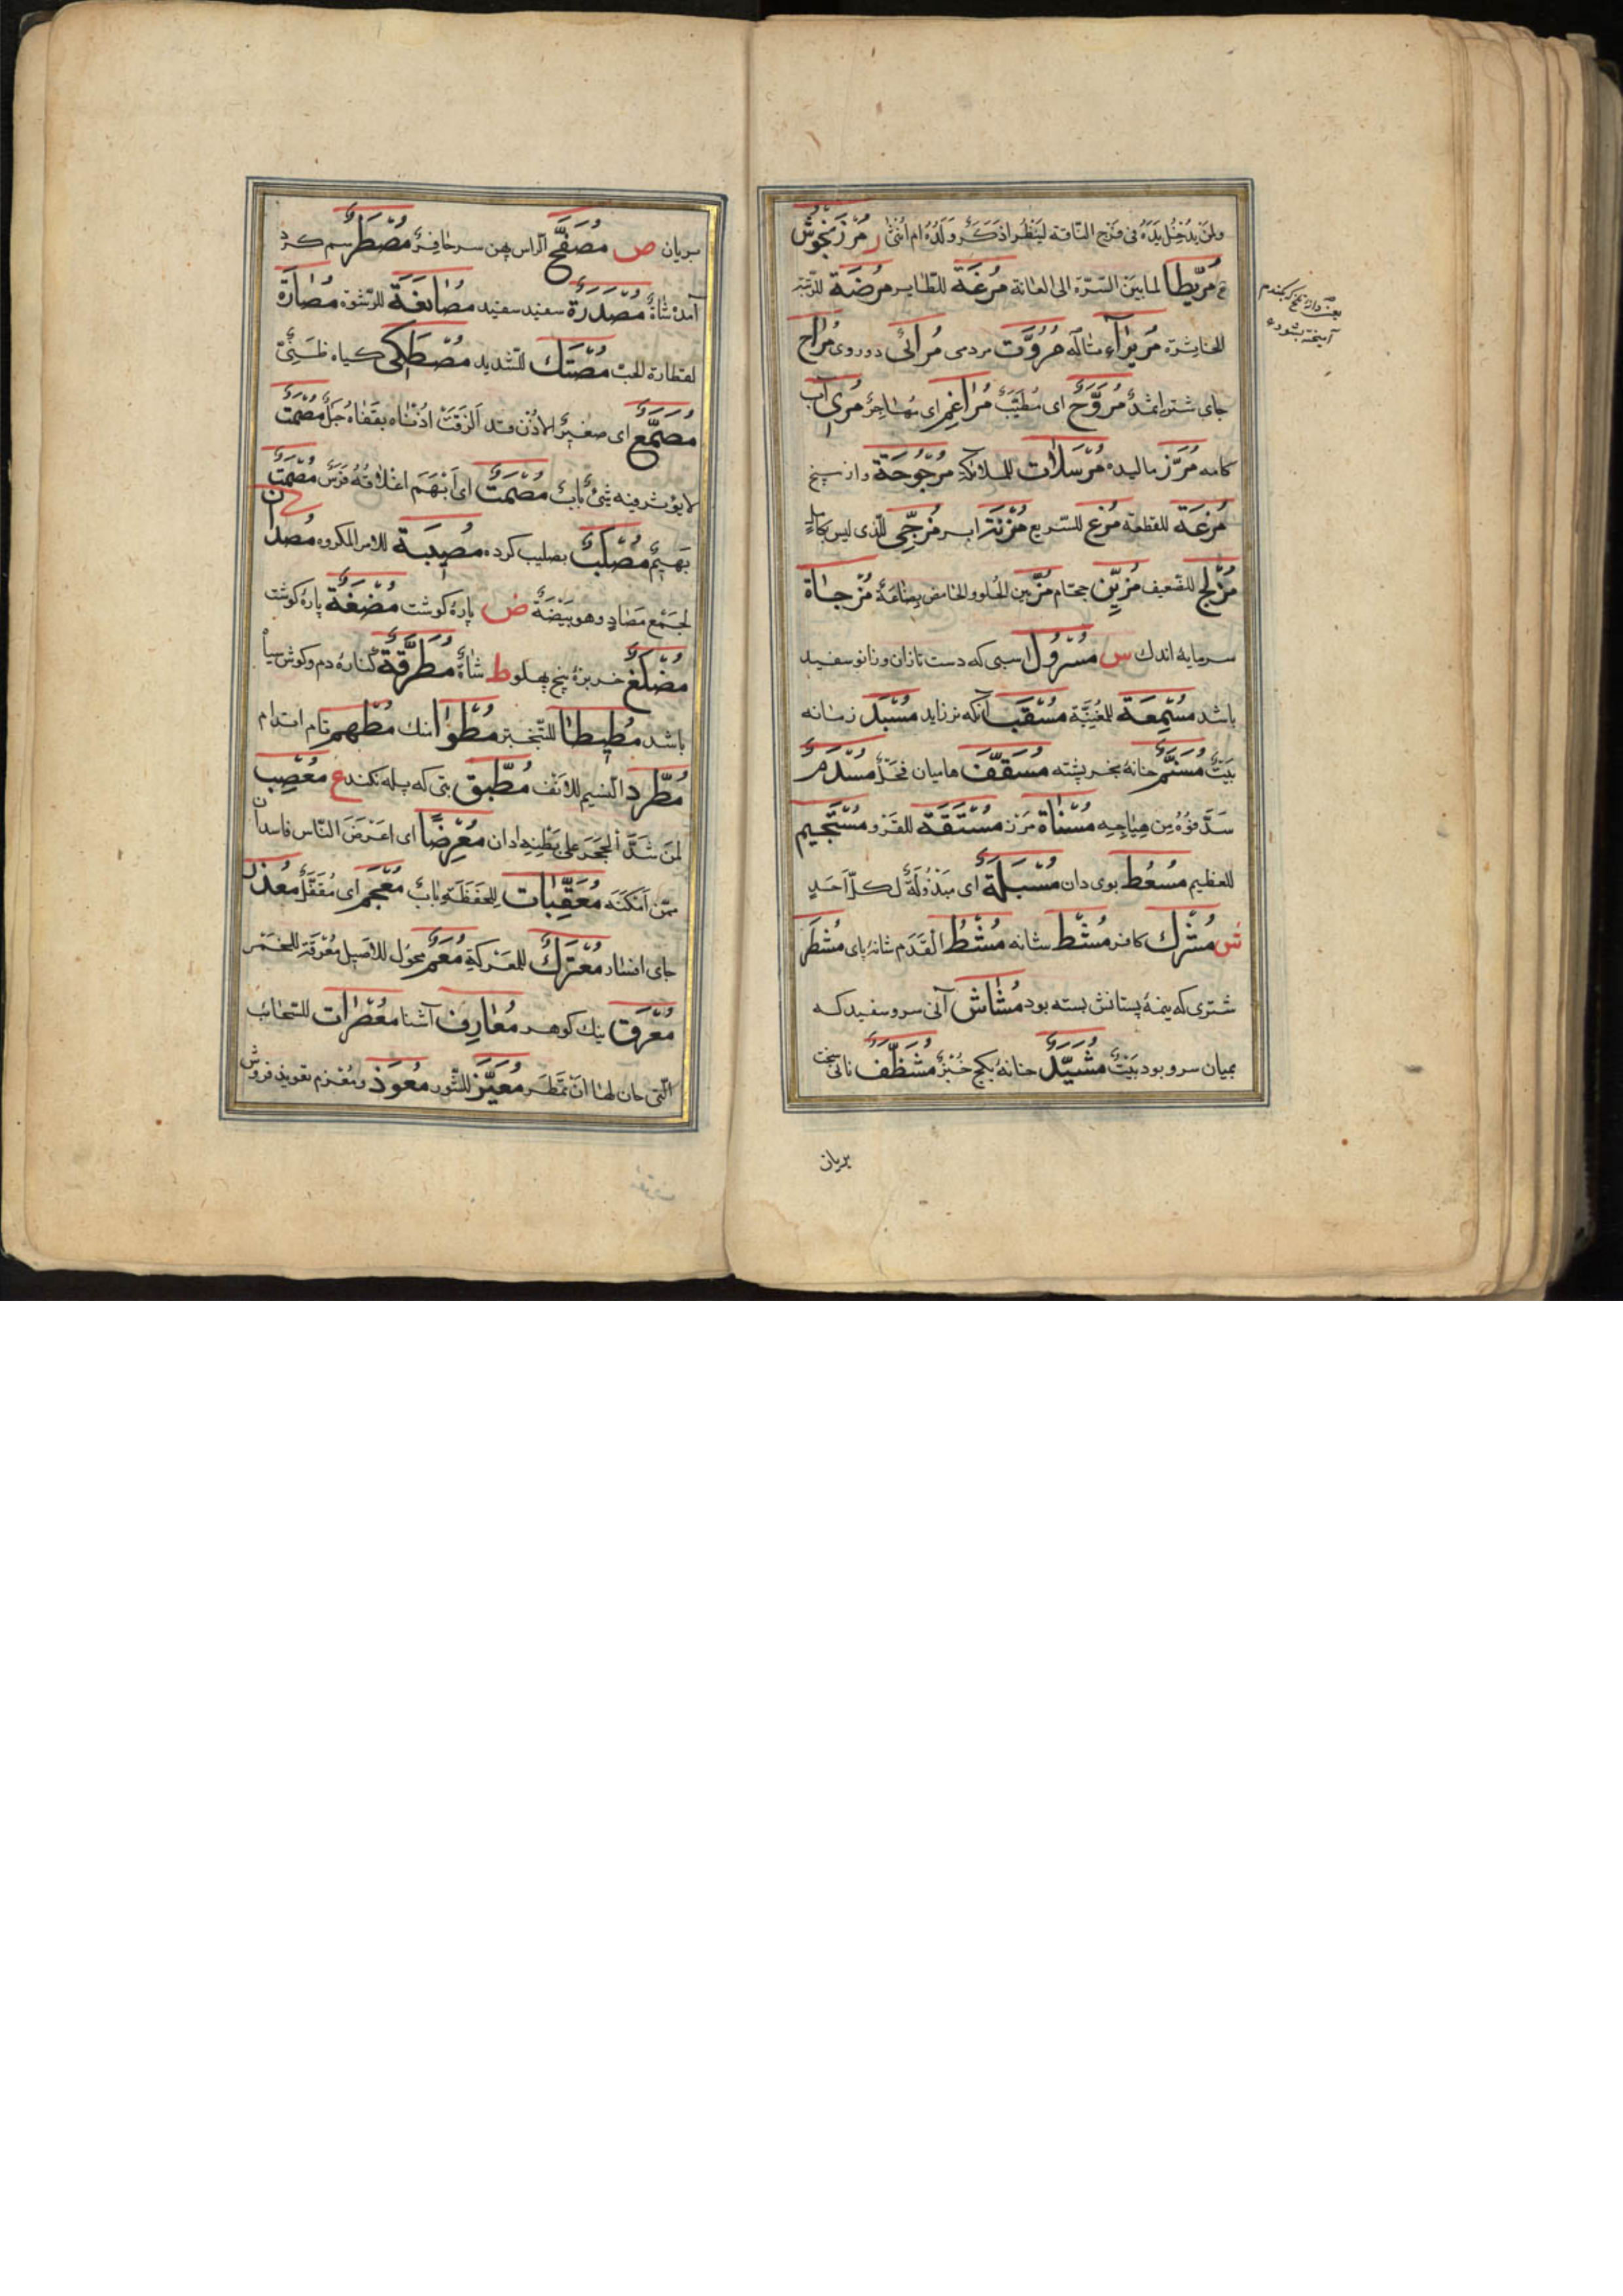 ولمن يدخل يده فى فرج الناقة لينظر اذكر ولده ام انثى ر مرزنجوش
مريطا لما بين السرة الى العانة مرغة للطاير مرضة للرتبة
للخاثرة مريراء مثاله مروت مردمى مرائى دوروى مراح
جاى شتر اثمد مروح اى مطيب مراغم اى مهاجر مرى آب
كامه مرز ماليده مرسلات للملائكة مرجوحة واز پيخ
مزعة للقطعة مزع للسريع مزنة ابر مزجى الذى ليس بكامل
مزلج للضعيف مزين حجام مز بين الحلو والحامض بضاعة مزجاة
سرمايه اندك س مسرول اسبى كه دست تازان وزانو سفيد
باشد مسمعة للمغنية مسقب آنكه نر زايد مسبد زمانه
بيت مسنم خانه بخرپشته مسقف هاميان فحل مسدم
سد فوه من هياجه مسناة مرز مستقة للفرو مستجيم
للعظيم مسعط بوى دان مسبلة اى مبذولة لكل احد
ش مشرك كافر مشط شانه مشط القدم شانه پاى مشطر
شترى كه نيمۀ پستانش بسته بود مشاش آنى سرو سفيد كه
بميان سرو بود بيت مشيد خانه بكج خبز مشظف نانى سخت
بريان
آميخته بشود
بريان ص مصفح الراس پهن سر حافر مصطر سم كرد
آمده شاة مصدرة سفيد سفيد مصانعة للرشوة مصارة
لقطارة الحب مصتك للشديد مصطكى كياه ظبى
مصمع اى صغير الاذن قد الزقت اذناه بقفاه جل مصمت
لا يؤثر فيه شئ باب مصمت اى ابهم اغلاقه فرس مصمت
بهيم مصلب بصليب كرده مصيبة للامر المكروه مصدان
لجمع مصاد وهو بيضة ض پاره كوشت مضغة پاره كوشت
مضلع خربزۀ پنج پهلو ط شاة مطرقة كنارۀ دم وكوش سياه
باشد مطيطا للتبختر مطوا انك مطهم تام اندام
مطرد النسيم للانف مطبق بتى كه پله نكند ع معصب
لمن شد الحجر على بطنه ادان معرضا اى اعرض الناس فاسدان
ممن امكنه معقبات للحفظة باب معجم اى مقفل معذل
جاى افسار معترك للمعركة معم مخول للاصيل معرقة للخمر
معرق نيك كوهر معارف آشنا معصرات للسحائب
التى حان لها ان تمطر معيز للثور معوذ ومعزم تعويذ فروش